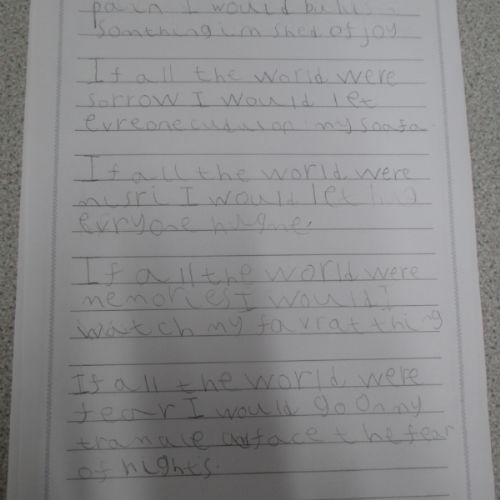 pain I would
somthing in shed of joy
If all the world were
sorrow I would let
evreone my soafa
If all the world were
musri I would let hug
evryone
If all the world were
memories I would
watch my favrat thing
If all the world were
fear I would go on my
face the fear
of hights.